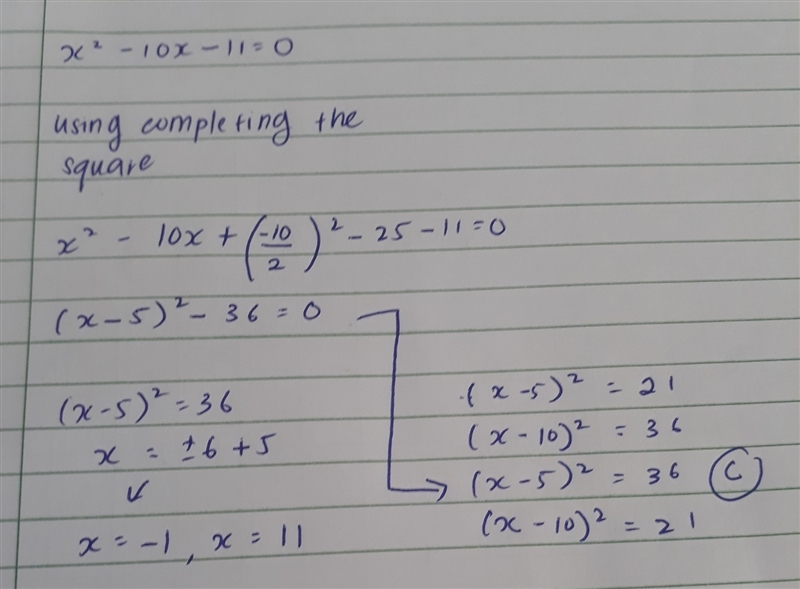 x² - 10x - 11 = 0
using completing the
square
x² - 10x + (-10/2)² - 25 - 11 = 0
(x - 5)² - 36 = 0
(x - 5)² = 36
x = ±6 + 5
x = -1, x = 11
(x - 5)² = 21
(x - 10)² = 36
(x - 5)² = 36 C
(x - 10)² = 21